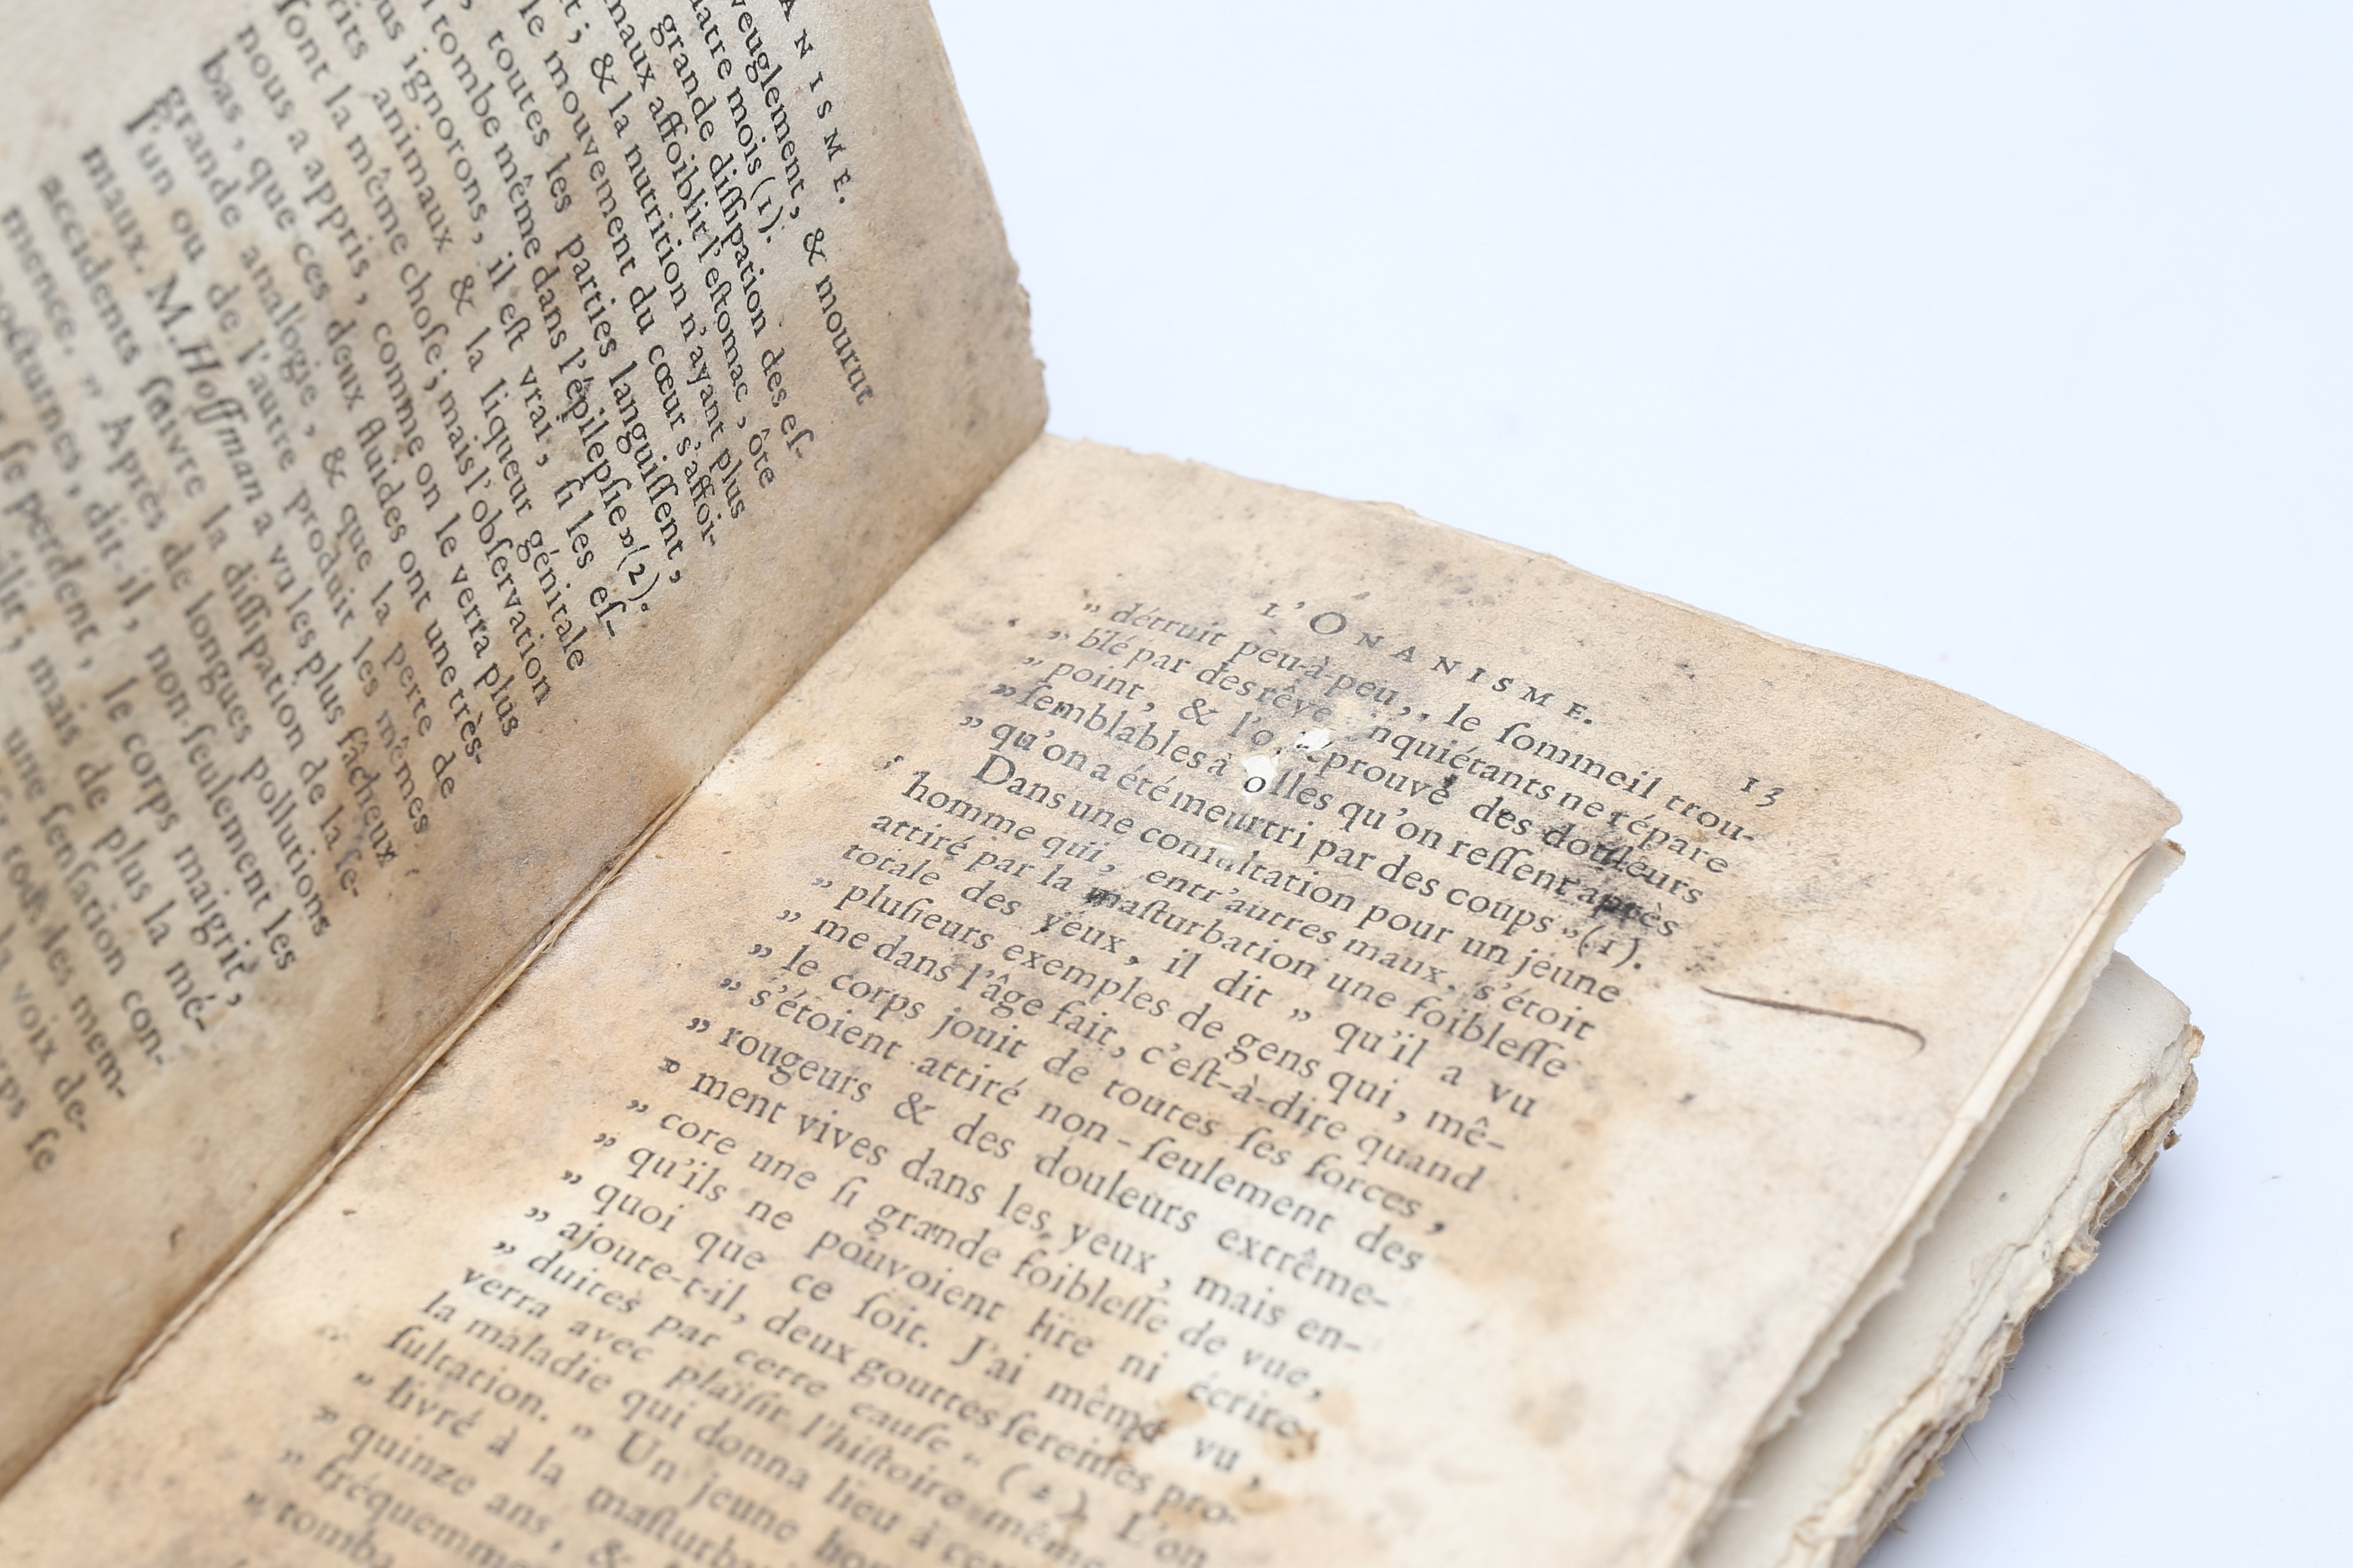 ANISME.
veuglement, & mourut
atre mois (1).
grande diſſipation des eſ-
maux affoiblit l'eſtomac, ôte
t; & la nutrition n'ayant plus
le mouvement du cœur s'affoi-
, toutes les parties languiſſent,
tombe même dans l'épilepſie » (2).
us ignorons, il eſt vrai, ſi les eſ-
rits animaux & la liqueur génitale
ſont la même choſe; mais l'obſervation
nous a appris, comme on le verra plus
bas, que ces deux fluides ont une très-
grande analogie, & que la perte de
l'un ou de l'autre produit les mêmes
maux. M. Hoffman a vu les plus fâcheux
accidents ſuivre la diſſipation de la ſe-
mence. „ Après de longues pollutions
nocturnes, dit-il, non-ſeulement les
ſe perdent, le corps maigrit,
mais de plus la mé-
une ſenſation con-
des mem-
la voix de-
corps ſe
L'ONANISME. 13
„ détruit peu-à-peu, le ſommeil trou-
„ blé par des rêve nquiétants ne répare
„ point, & l'o éprouve des douleurs
„ ſemblables à lles qu'on reſſent après
„ qu'on a été meurtri par des coups „ (1).
Dans une conſultation pour un jeune
homme qui, entr'autres maux, s'étoit
attiré par la maſturbation une foibleſſe
totale des yeux, il dit „ qu'il a vu
„ pluſieurs exemples de gens qui, mê-
„ me dans l'âge fait, c'eſt-à-dire quand
„ le corps jouit de toutes ſes forces,
„ s'étoient attiré non-ſeulement des
„ rougeurs & des douleurs extrême-
„ ment vives dans les yeux, mais en-
„ core une ſi grande foibleſſe de vue,
„ qu'ils ne pouvoient lire ni écrire
„ quoi que ce ſoit. J'ai même vu,
„ ajoute-t-il, deux gouttes ſereines pro-
„ duites par cette cauſe „ (2). L'on
verra avec plaiſir l'hiſtoire même
la maladie qui donna lieu à
ſultation. „ Un jeune
„ livré à la maſturba
„ quinze ans, &
„ fréquemme
„ tomba